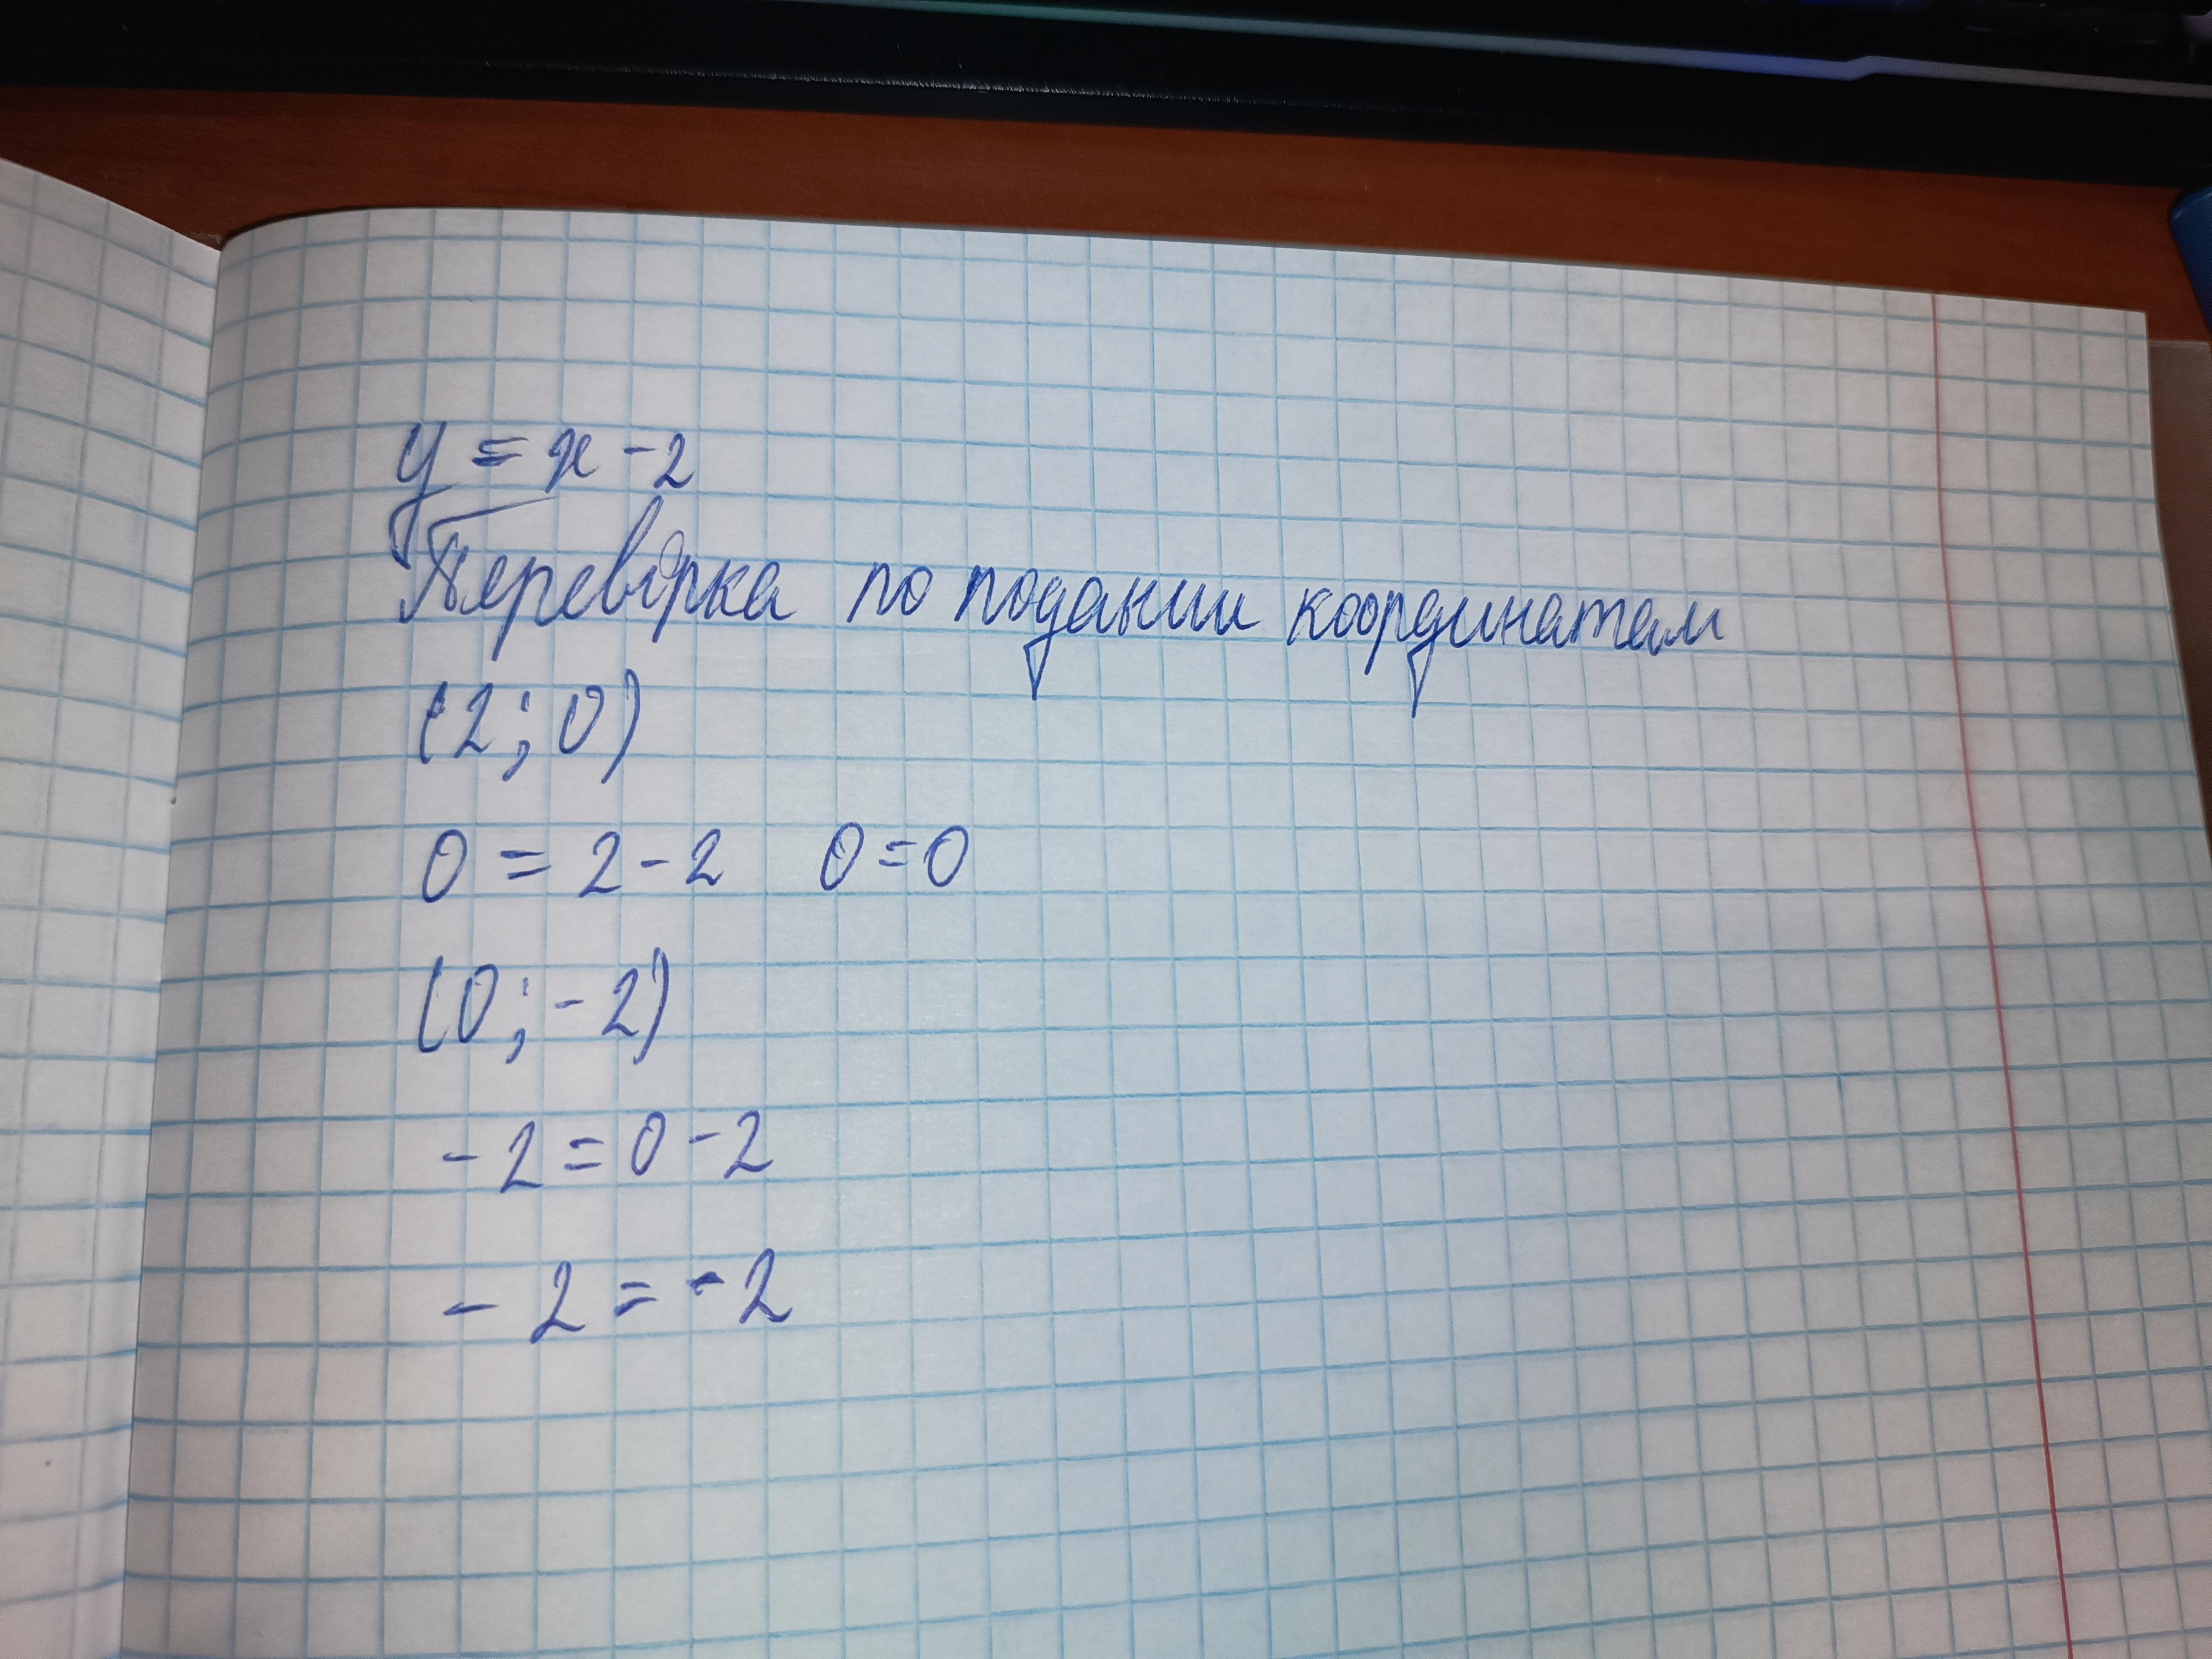 y = x - 2
Перевірка по поданим координатам
(2; 0)
0 = 2 - 2 0 = 0
(0; - 2)
- 2 = 0 - 2
- 2 = - 2